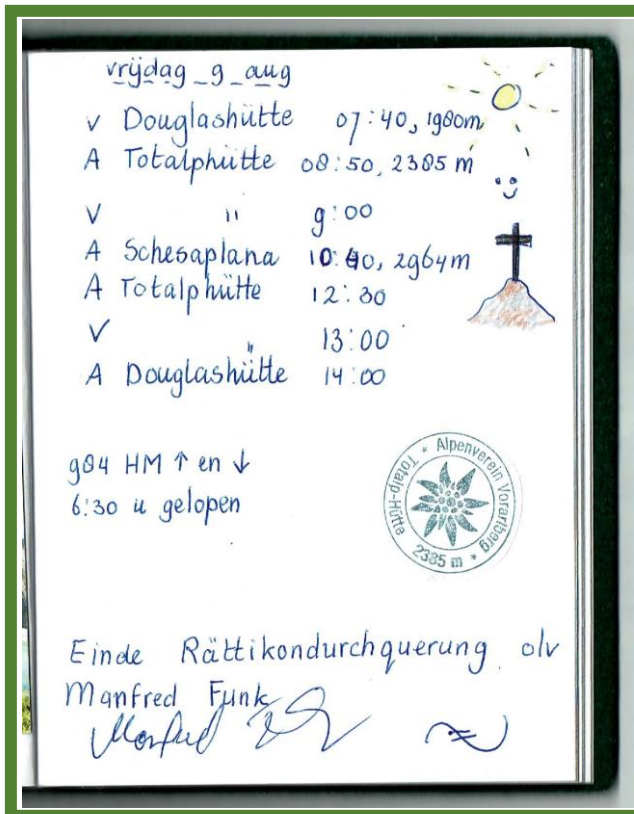 vrijdag 9 aug
V Douglashütte 07:40, 1980m
A Totalphütte 08:50, 2385 m
V " 9:00
A Schesaplana 10:40, 2964m
A Totalphütte 12:30
V " 13:00
A Douglashütte 14:00
984 HM ↑ en ↓
6:30 u gelopen
* Alpenverein Vorarlberg *
Totalp-Hütte
2385 m
Einde Rättikondurchquerung olv
Manfred Funk
Manfred